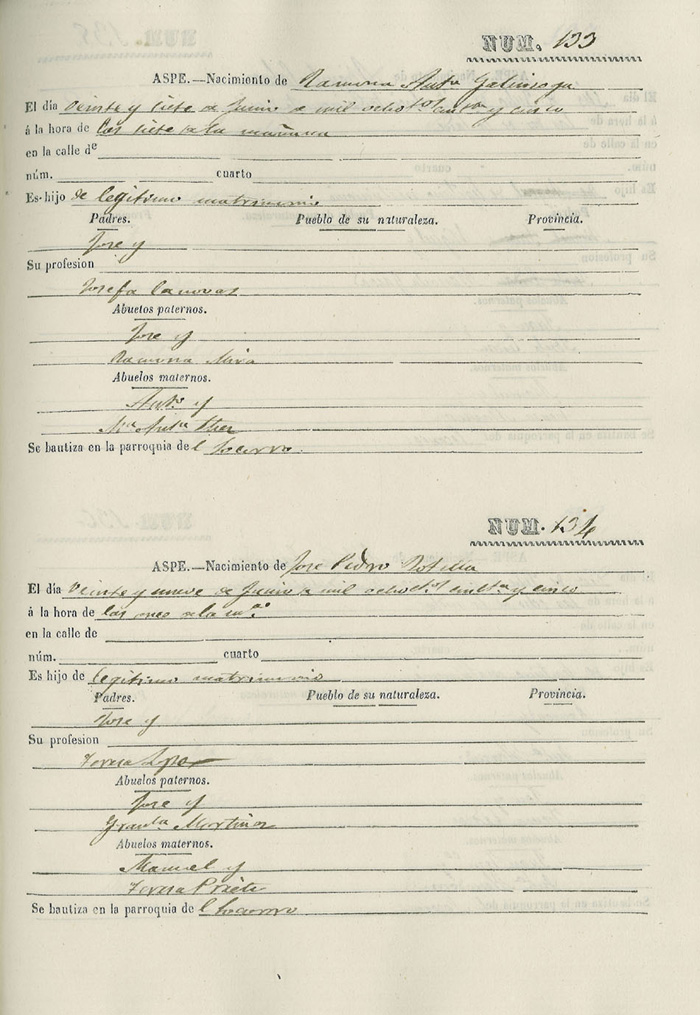 NUM. 133
ASPE.—Nacimiento de Ramona Antª Galinsoga
El día veinte y siete de Junio de mil ochotos cinta y cinco
á la hora de las siete de la mañana
en la calle de
núm. cuarto
Es hijo de legitimo matrimonio
Padres. Pueblo de su naturaleza. Provincia.
Jose y
Su profesion
Josefa Canovas
Abuelos paternos.
Jose y
Ramona Mira
Abuelos maternos.
Antº y
Mª
Se bautiza en la parroquia del Socorro.
NUM. 134
ASPE.—Nacimiento de Jose Pedro Botella
El día veinte y nueve de Junio de mil ochotos cinta y cinco
á la hora de las once de la mª
en la calle de
núm. cuarto
Es hijo de legitimo matrimonio
Padres. Pueblo de su naturaleza. Provincia.
Jose y
Su profesion
Teresa Lopez
Abuelos paternos.
Jose y
Martinez
Abuelos maternos.
Manuel y
Teresa Prieto
Se bautiza en la parroquia del Socorro